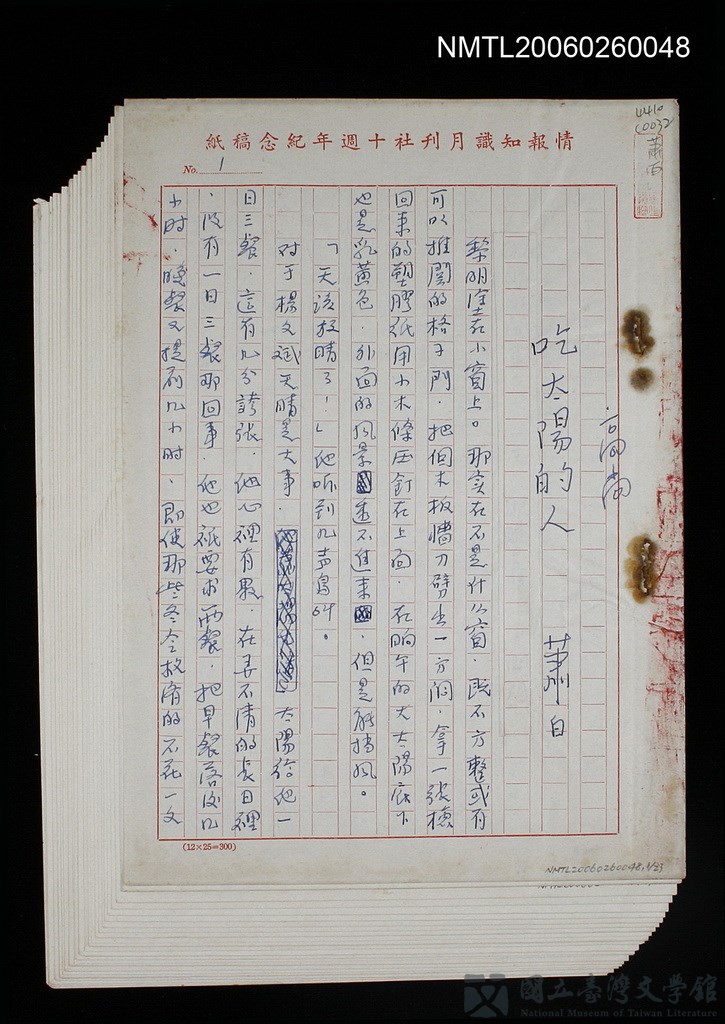 NMTL20060260048
情報知識月刊社十週年紀念稿紙
No. 1
4410
0032
蕭白
吃太陽的人 蕭白
黎明塗在小窗上。那实在不是什么窗，既不方整或有
可以推開的格子門，把個木板牆刀劈出一方洞，拿一張撿
回来的塑膠纸用小木條四釘在上面，在晌午的大太陽底下
也是乳黃色，外面的风景透不進来，但是能擋风。
「天该放晴了！」他听到几声鳥叫。
对于楊文斌天晴是大事，太陽给他一
日三餐，這有几分誇张，他心裡有數，在弄不清的長日裡
，没有一日三餐那回事，他也祇要求两餐，把早餐落後几
小时，晚餐又提前几小时，即使那些冬令救濟的不花一文
(12×25=300)
NMTL20060260048,1/23
國立臺灣文學館
National Museum of Taiwan Literature